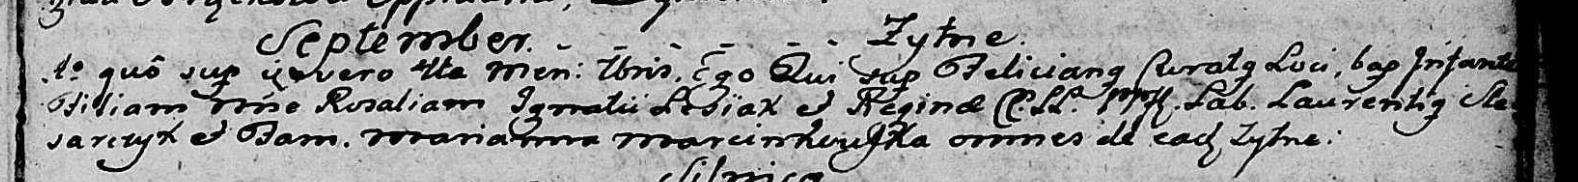 September. Zytne.
quô sup die vero 4ta Men: 7bris. Ego Qui sup Felicianq Curatq Loci, bap Infante
Filiam nñe Rosaliam Ignatii Lebiak et Reginæ C: LL. Lab. Laurentiq Sle-
sarczyk et Fam. Marianna Marcinkowska omnes de ead Zytne.